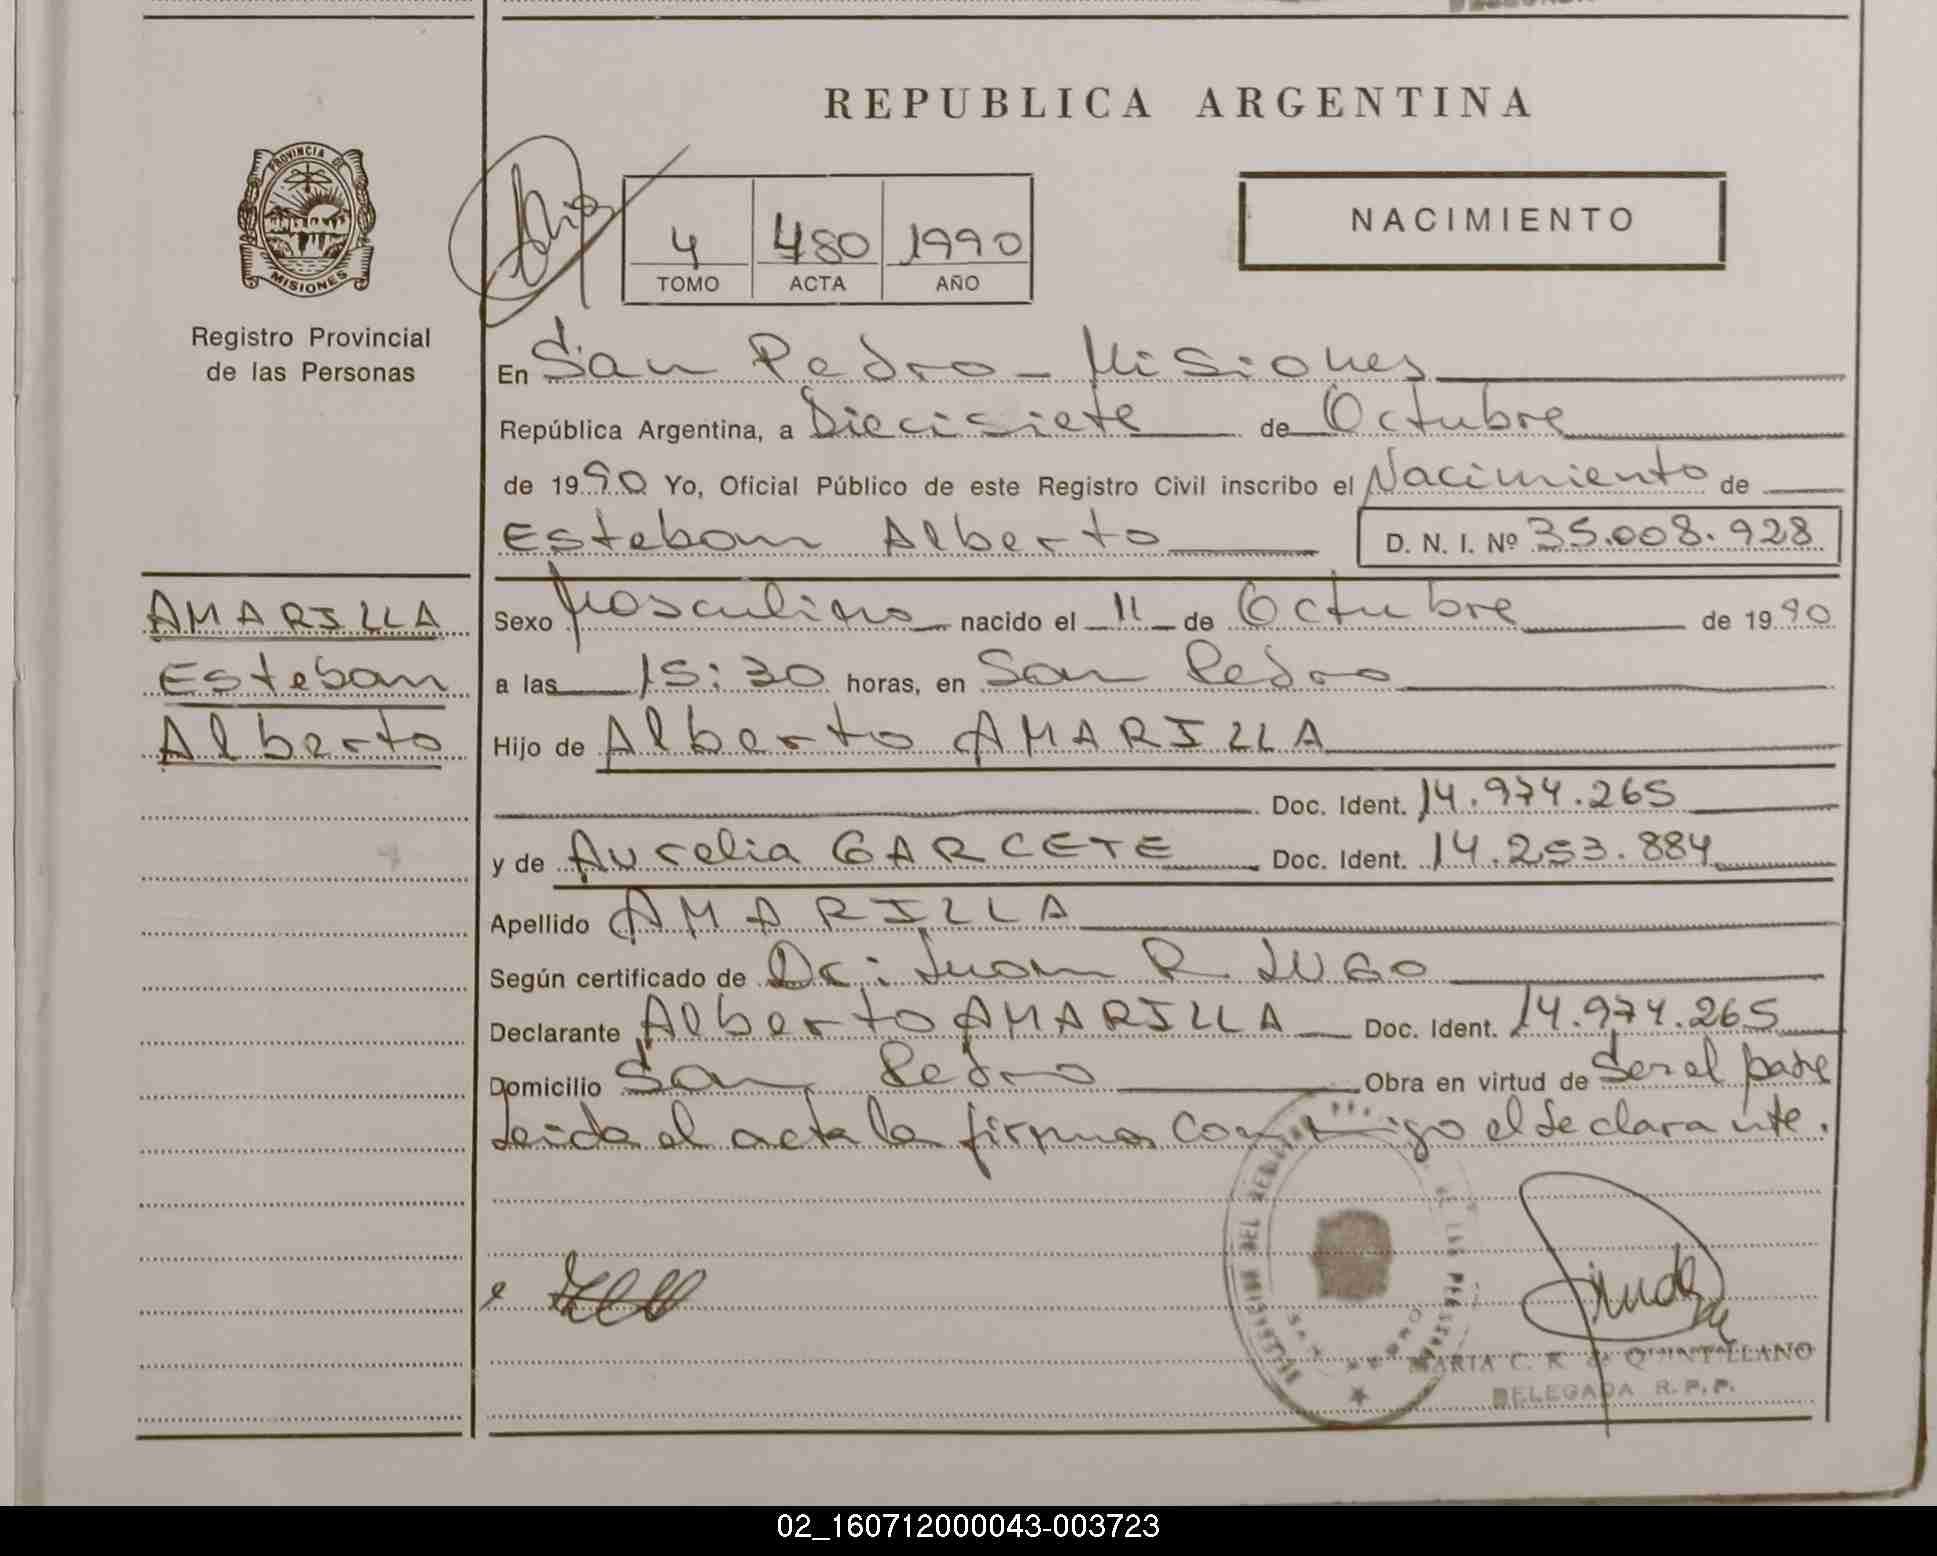 REPUBLICA ARGENTINA
PROVINCIA DE
MISIONES
Registro Provincial
de las Personas
4 480 1990
TOMO ACTA AÑO
NACIMIENTO
En San Pedro - Misiones
República Argentina, a Diecisiete de Octubre
de 1990 Yo, Oficial Público de este Registro Civil inscribo el Nacimiento de
Esteban Alberto D. N. I. Nº 35.008.928
AMARILLA
Esteban
Alberto
Sexo Masculino nacido el 11 de Octubre de 1990
a las 15:30 horas, en San Pedro
Hijo de Alberto AMARILLA
Doc. Ident. 14.974.265
y de Aurelia GARCETE Doc. Ident. 14.253.884
Apellido AMARILLA
Según certificado de Dr: Juan R LUGO
Declarante Alberto AMARILLA Doc. Ident. 14.974.265
Domicilio San Pedro Obra en virtud de Ser el padre
Leida el acta la firma conmigo el declarante.
MARIA C. R. de QUINTILLANO
DELEGADA R.P.P.
02_160712000043-003723